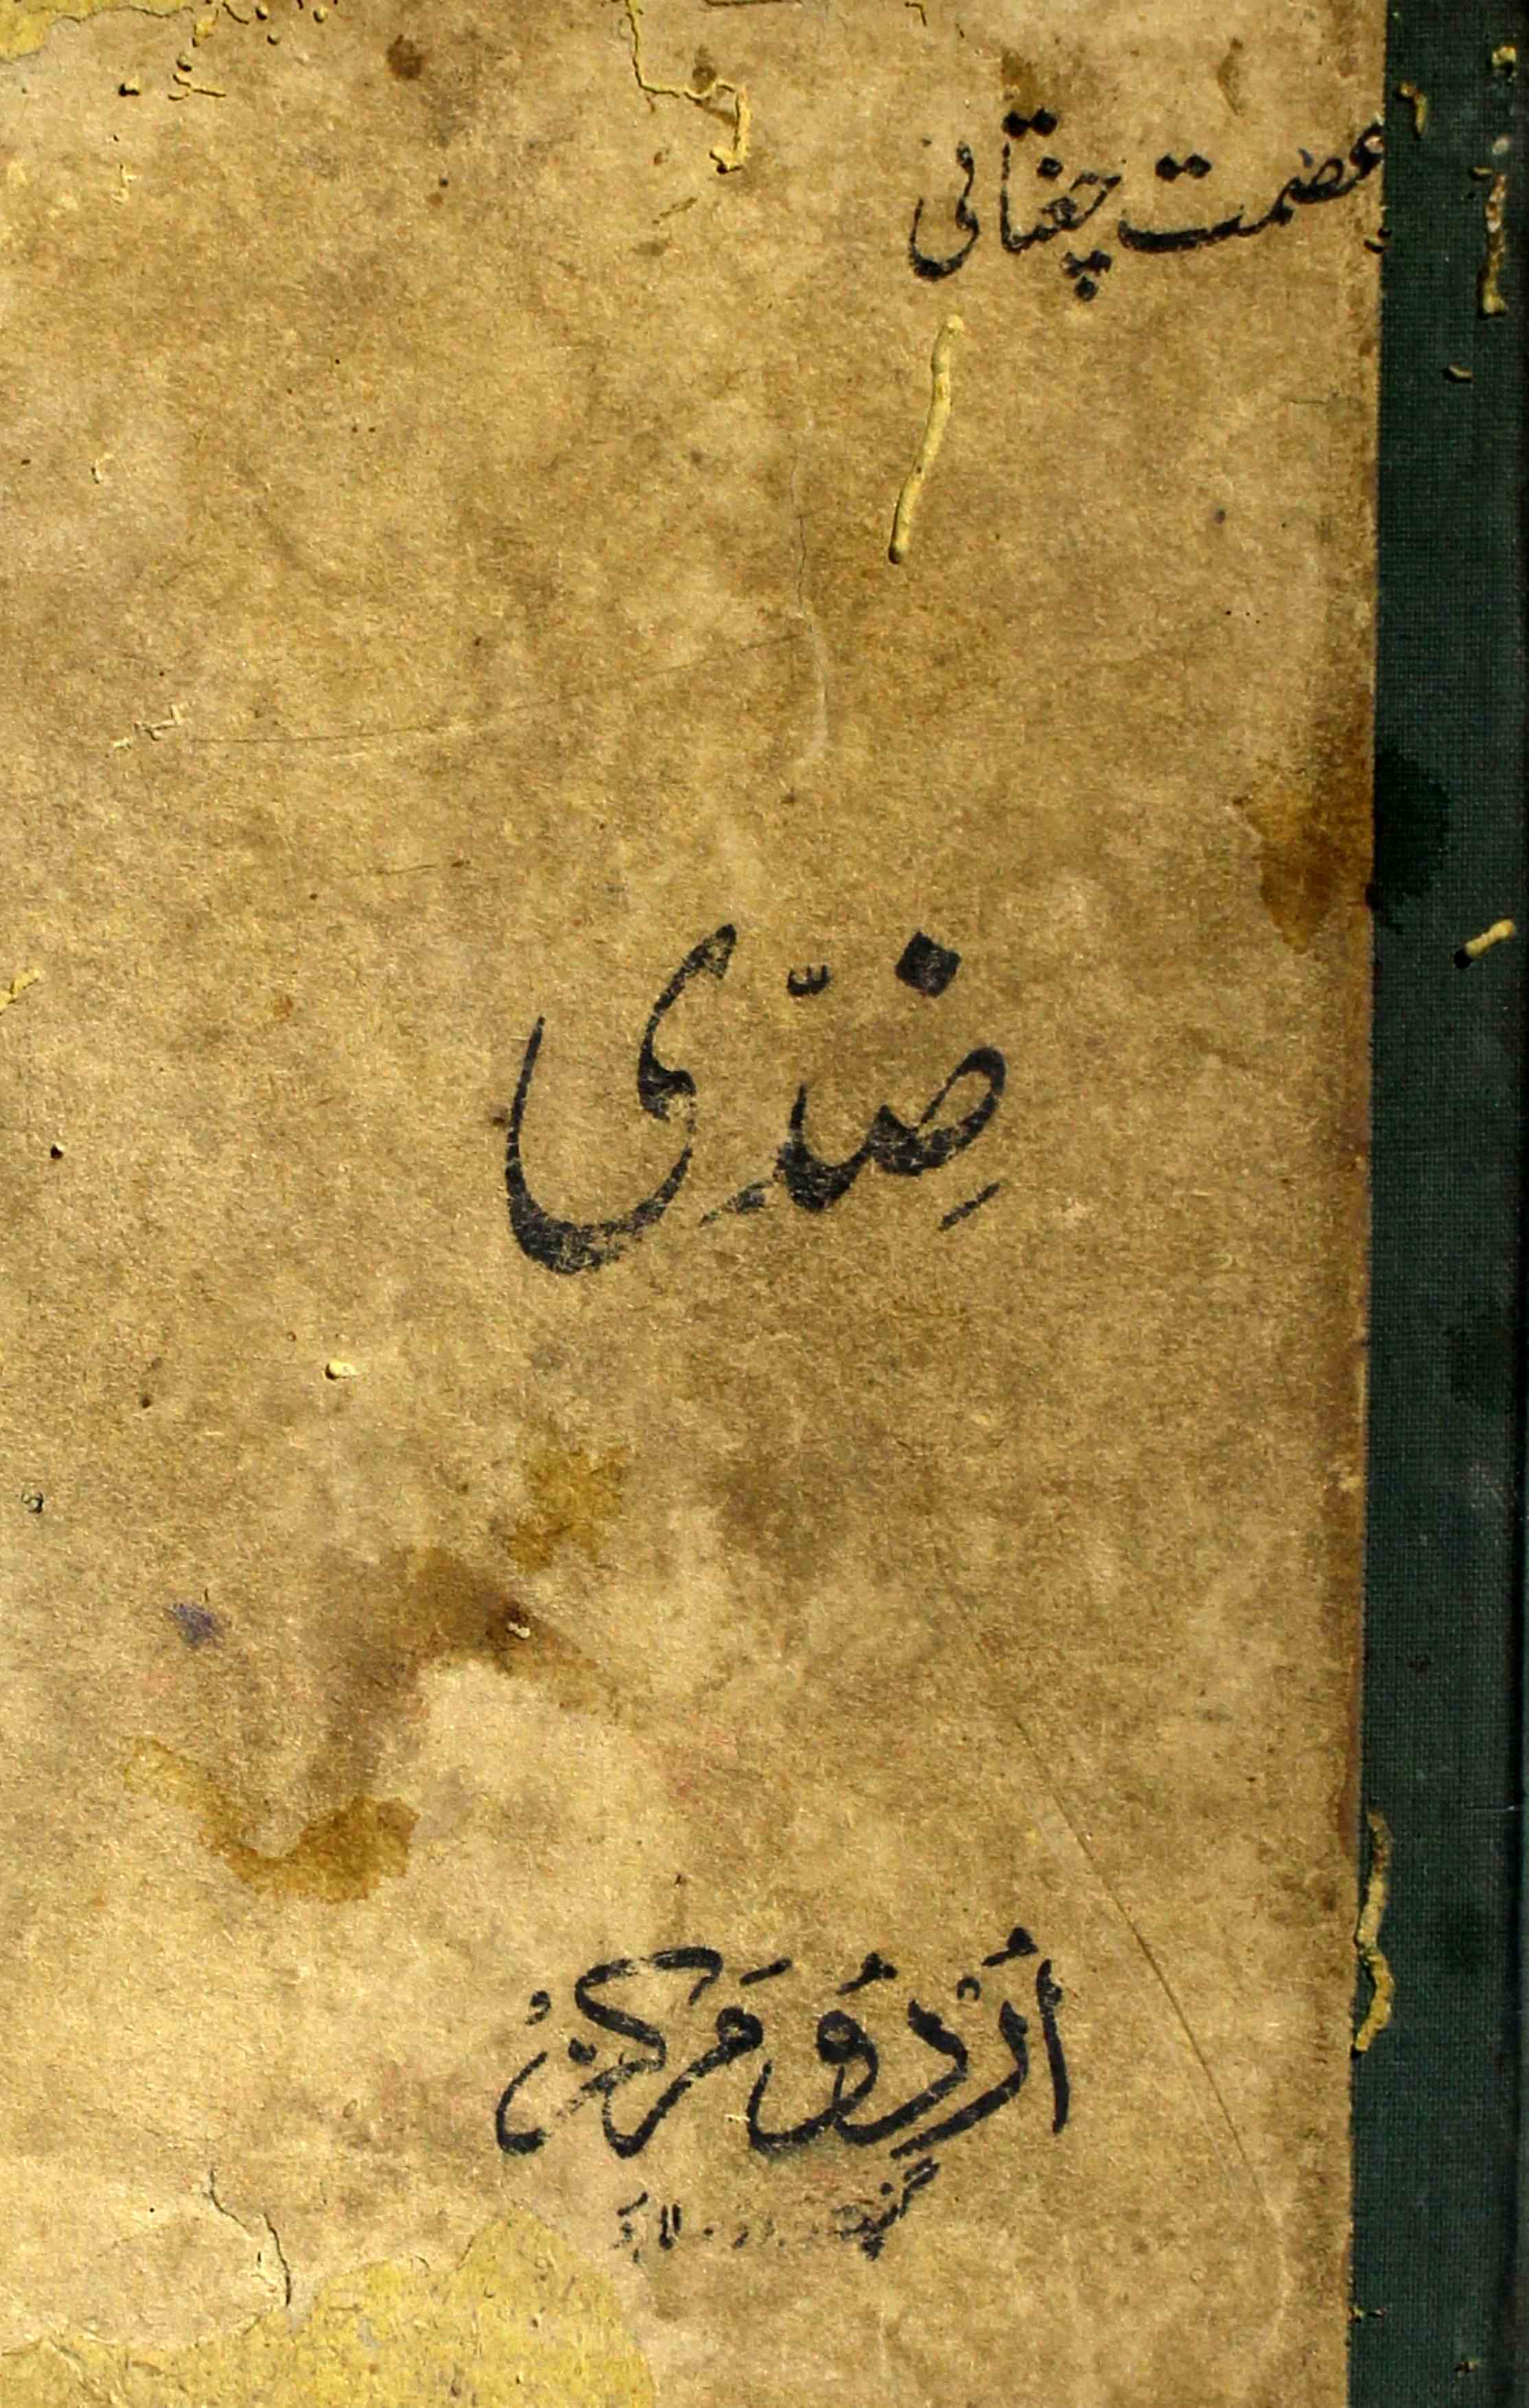 عصمت چغتائی
ضِدّی
اُرْدُو مَرکز
لاہور